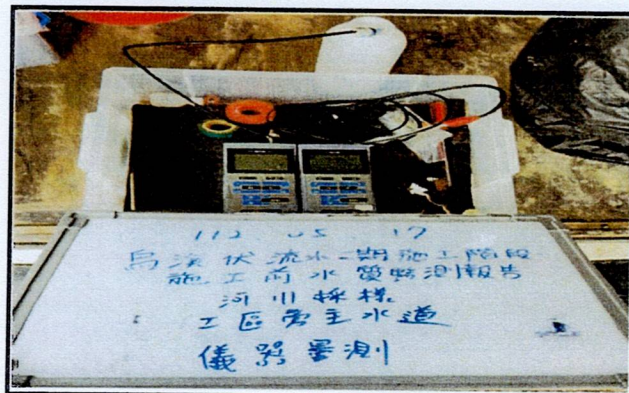 112 05 17
烏溪伏流水二期施工階段
施工前水質監測報告
河川採樣
工區旁主水道
儀器量測